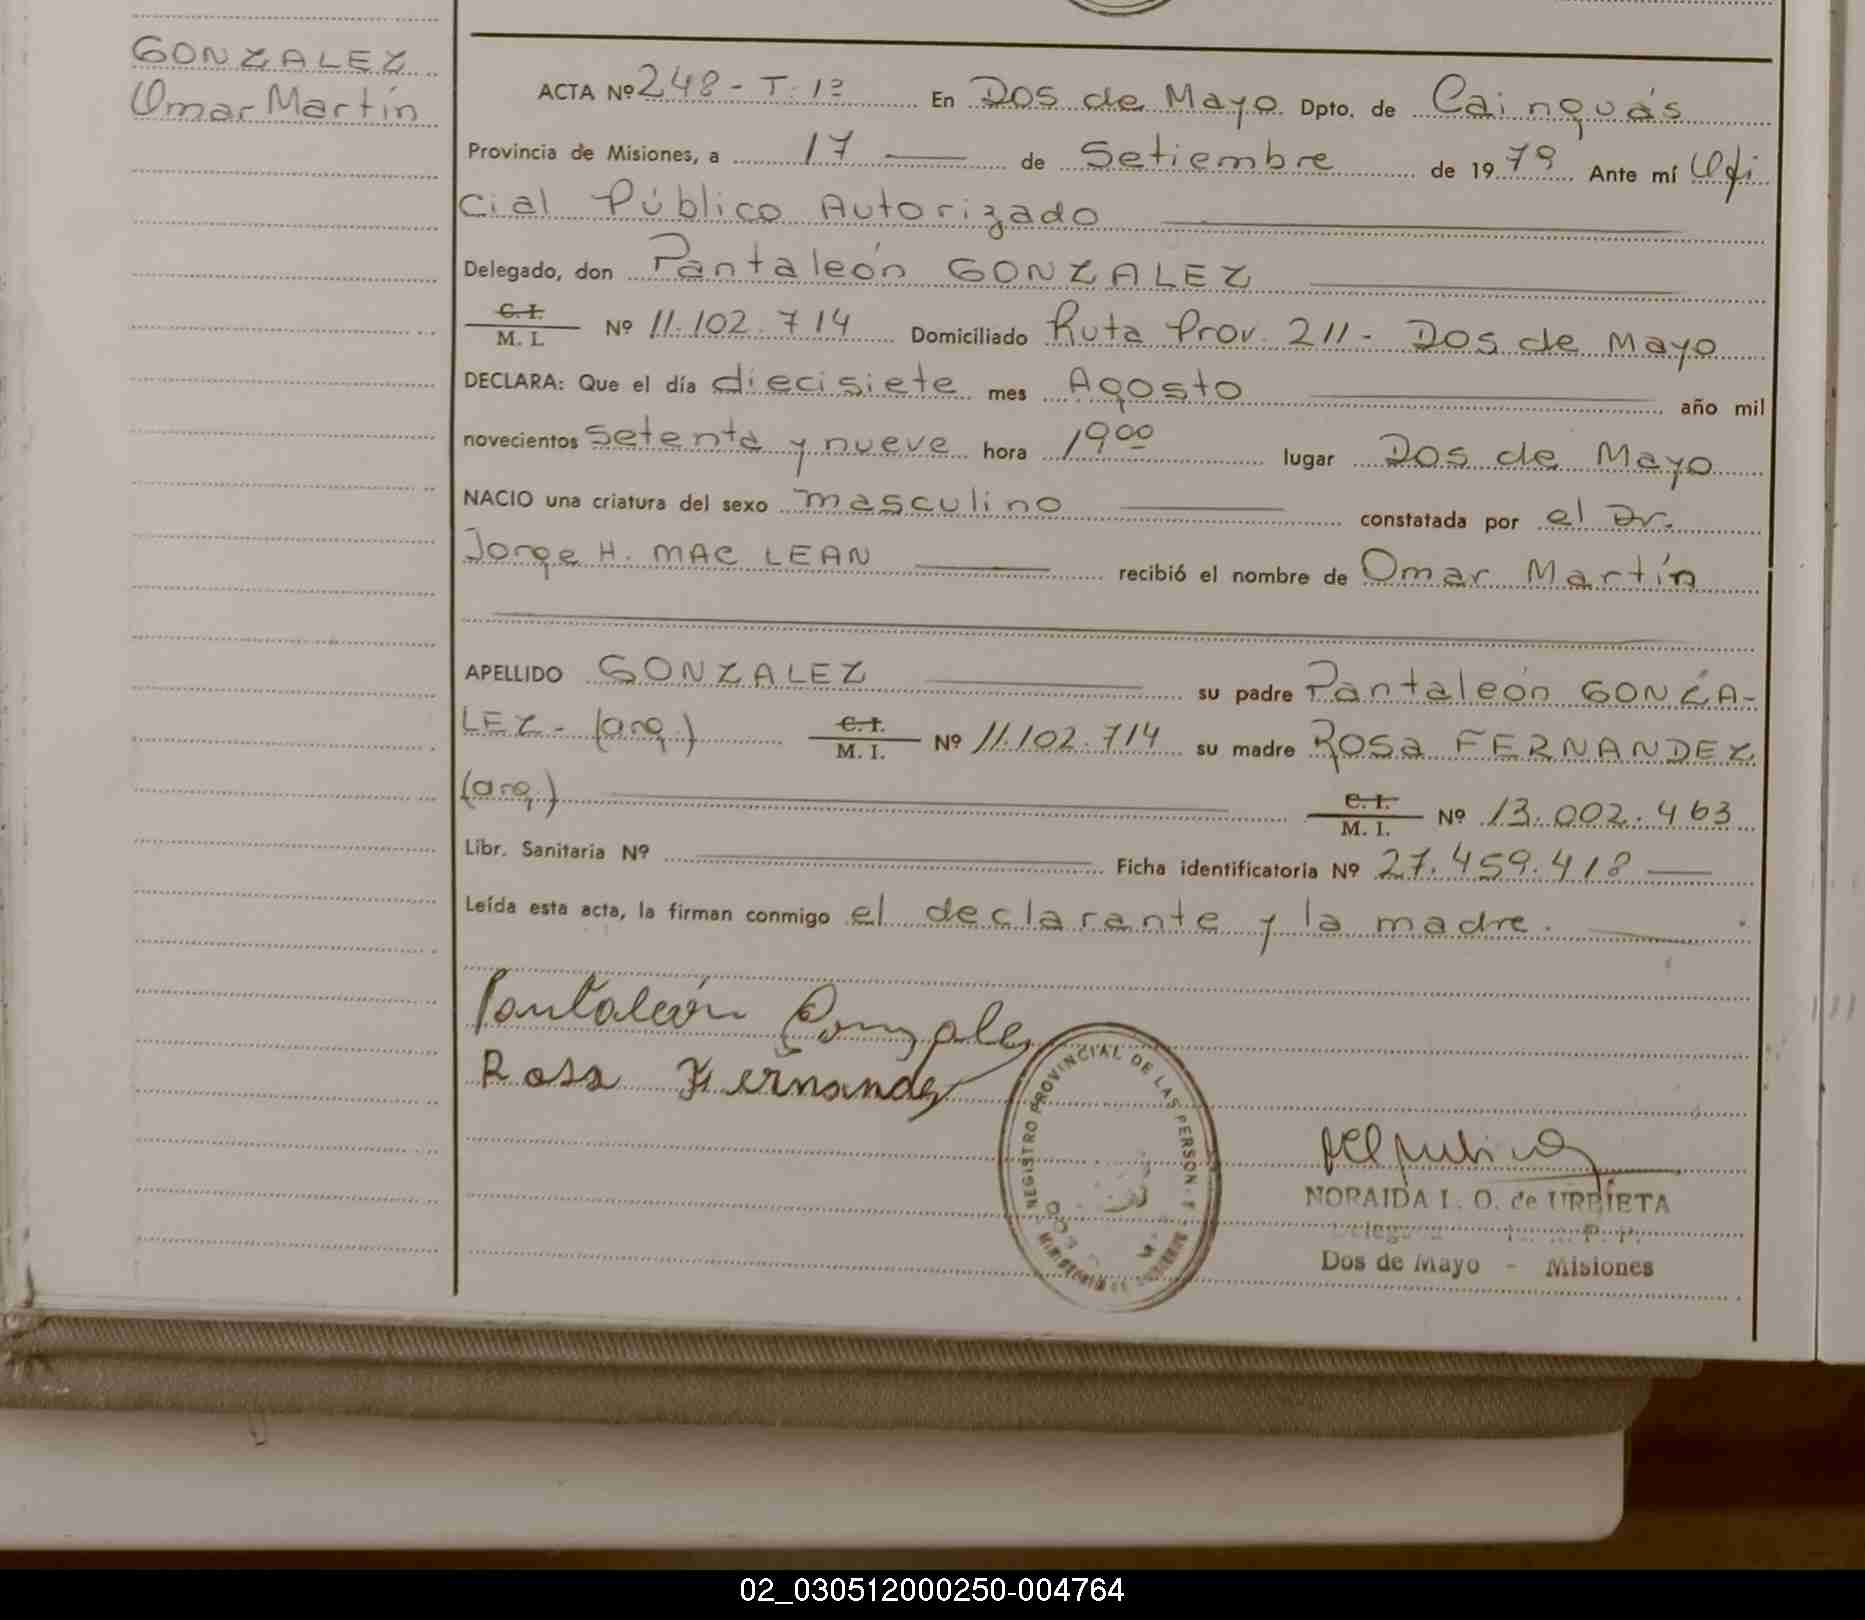 GONZALEZ
Omar Martín
ACTA Nº 248 - T. 1º En Dos de Mayo Dpto. de Cainguás
Provincia de Misiones, a 17 de Setiembre de 1979 Ante mí Ofi
cial Público Autorizado
Delegado, don Pantaleón GONZALEZ
C. I.
M. I. Nº 11.102.714 Domiciliado Ruta Prov. 211 - Dos de Mayo
DECLARA: Que el día diecisiete mes Agosto año mil
novecientos setenta y nueve hora 19 00 lugar Dos de Mayo
NACIO una criatura del sexo masculino constatada por el Dr.
Jorge H. MAC LEAN recibió el nombre de Omar Martín
APELLIDO GONZALEZ su padre Pantaleón GONZA-
LEZ - (arg.) C. I. M. I. Nº 11.102.714 su madre Rosa FERNANDEZ
(arg.) C. I. M. I. Nº 13.002.463
Libr. Sanitaria Nº Ficha identificatoria Nº 27.459.418
Leída esta acta, la firman conmigo el declarante y la madre.
Pantaleón Gonzalez
Rosa Fernandez
REGISTRO PROVINCIAL DE LAS PERSON
NORAIDA I. O. de URBIETA
Dos de Mayo - Misiones
02_030512000250-004764